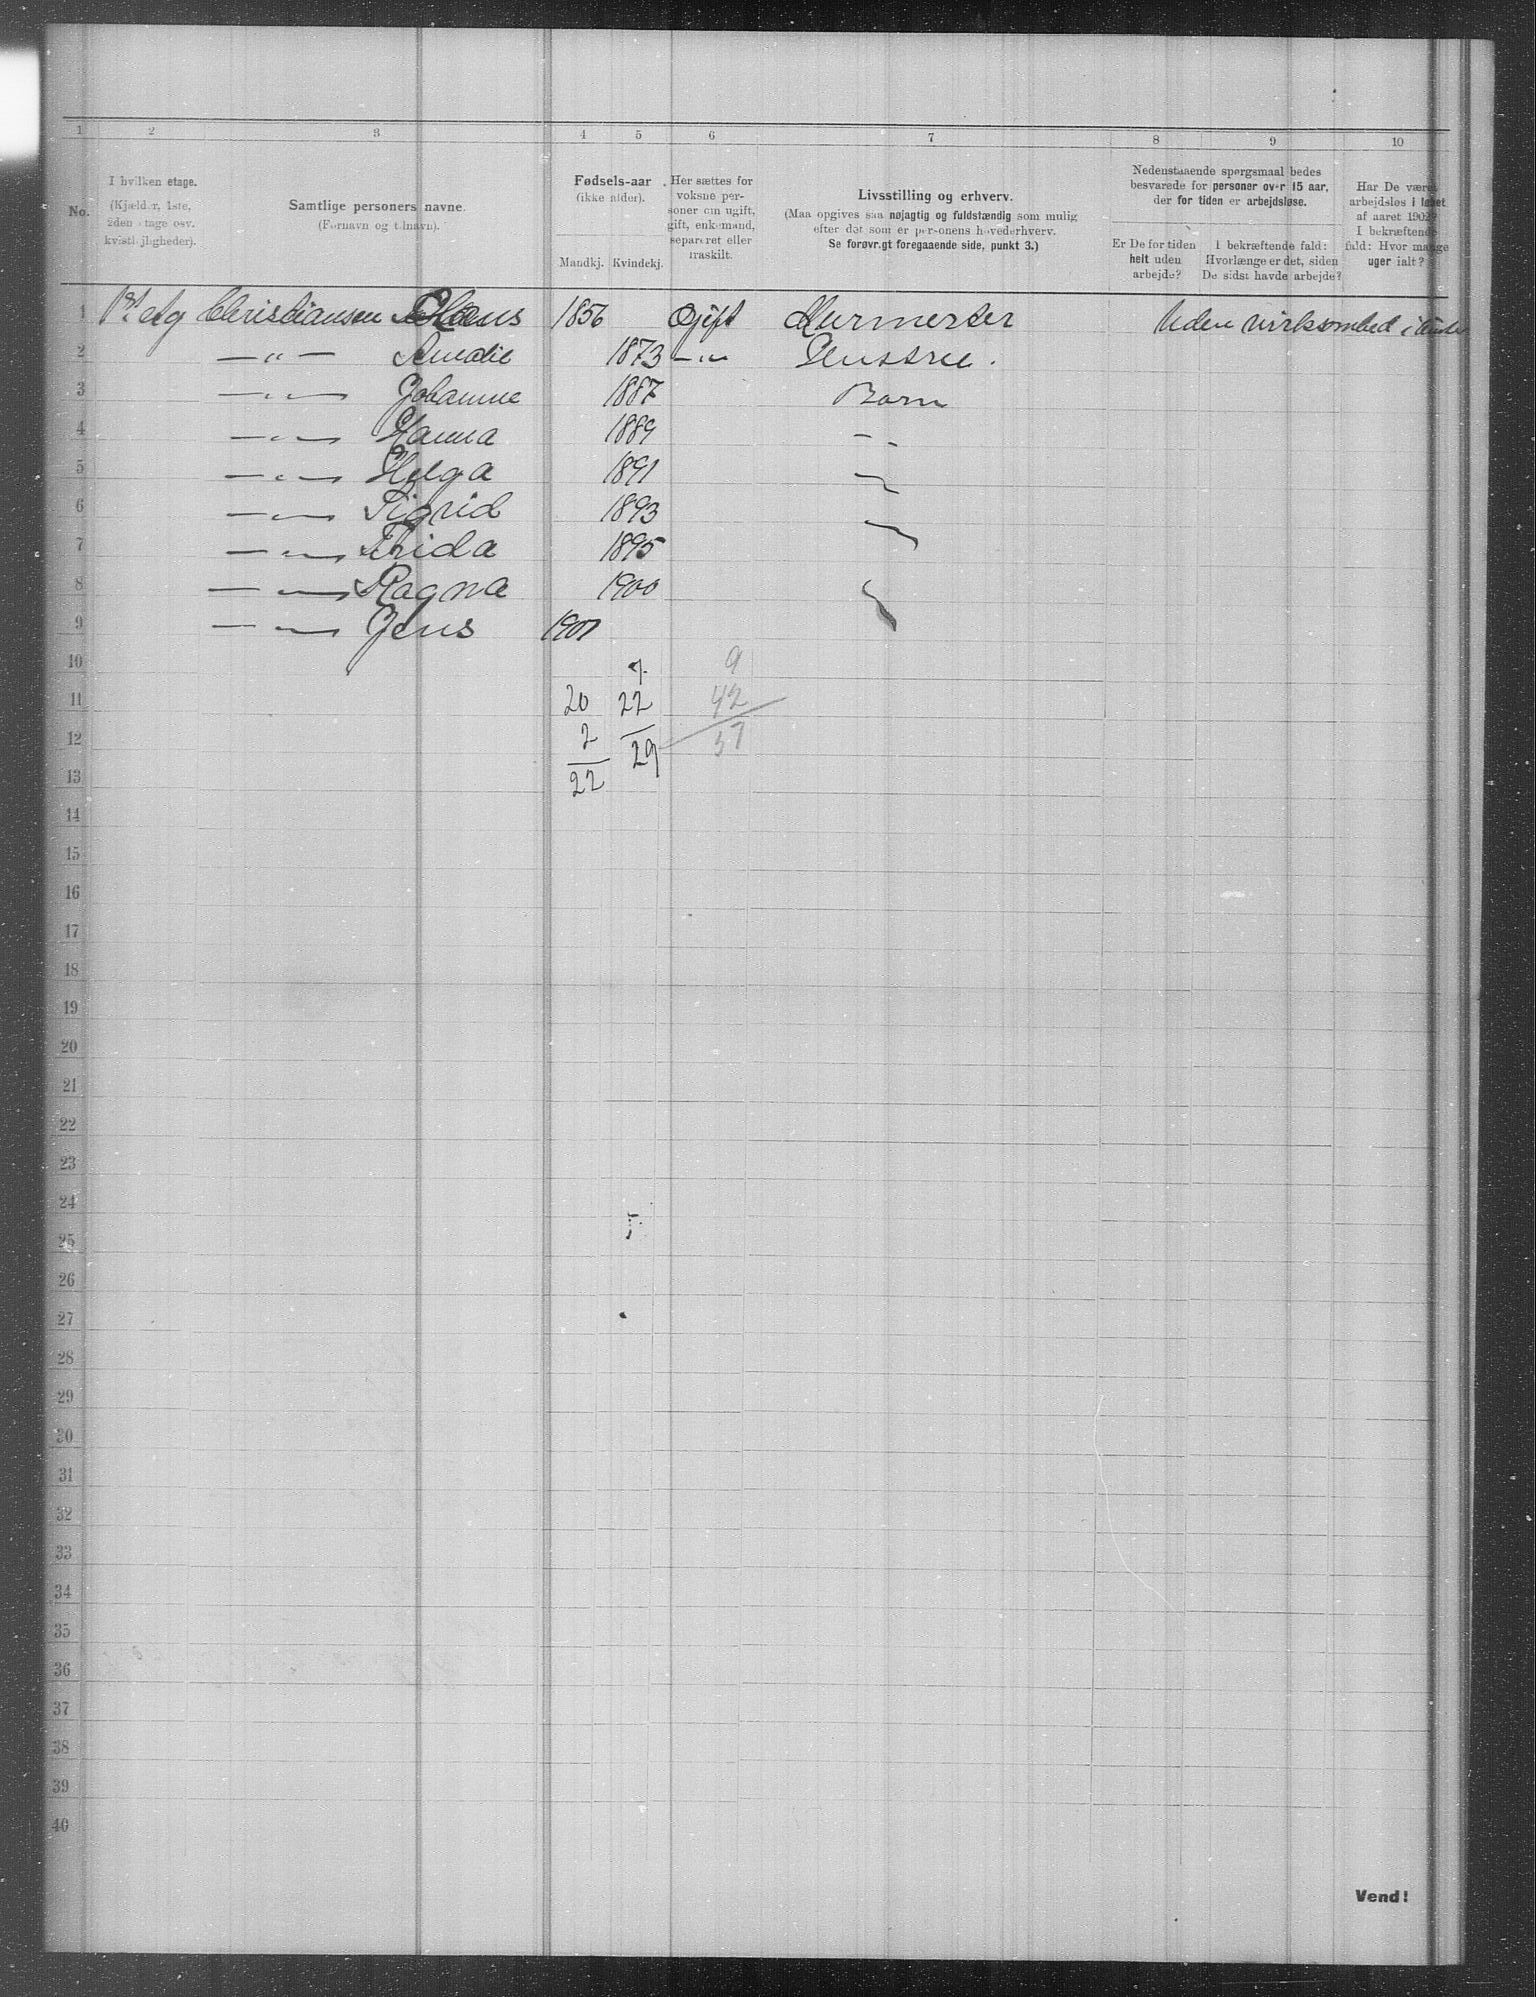 1 2 3 4 5 6 7 8 9 10
No.
I hvilken etage.
(Kjælder, 1ste,
2den etage osv.
kvistleiligheder).
Samtlige personers navne.
(Fornavn og tilnavn).
Fødsels-aar
(ikke alder).
Mandkj. Kvindekj.
Her sættes for
voksne per-
soner om ugift,
gift, enkemand,
separeret eller
fraskilt.
Livsstilling og erhverv.
(Maa opgives saa nøjagtig og fuldstændig som mulig
efter det som er personens hovederhverv.
Se forøvrigt foregaaende side, punkt 3.)
Nedenstaaende spørgsmaal bedes
besvarede for personer over 15 aar,
der for tiden er arbejdsløse.
Er De for tiden
helt uden
arbejde?
I bekræftende fald:
Hvorlænge er det, siden
De sidst havde arbejde?
Har De været
arbejdsløs i løbet
af aaret 1902?
I bekræftende
fald: Hvor mange
uger ialt?
1 1st etg Christiansen Hans 1856 Gift Murmester Uden virksomhed i
2 — „ — Amalie 1873 — „ — Hustru.
3 — „ — Johanne 1887 Barn
4 — „ — Hanna 1889 — -
5 — „ — Helga 1891
6 — „ — Sigrid 1893
7 — „ — Frida 1895
8 — „ — Ragna 1900
9 — „ — Jens 1901
10 7 9
11 20 22 42
12 2 29
13 22
14
15
16
17
18
19
20
21
22
23
24
25
26
27
28
29
30
31
32
33
34
35
36
37
38
39
40
Vend!